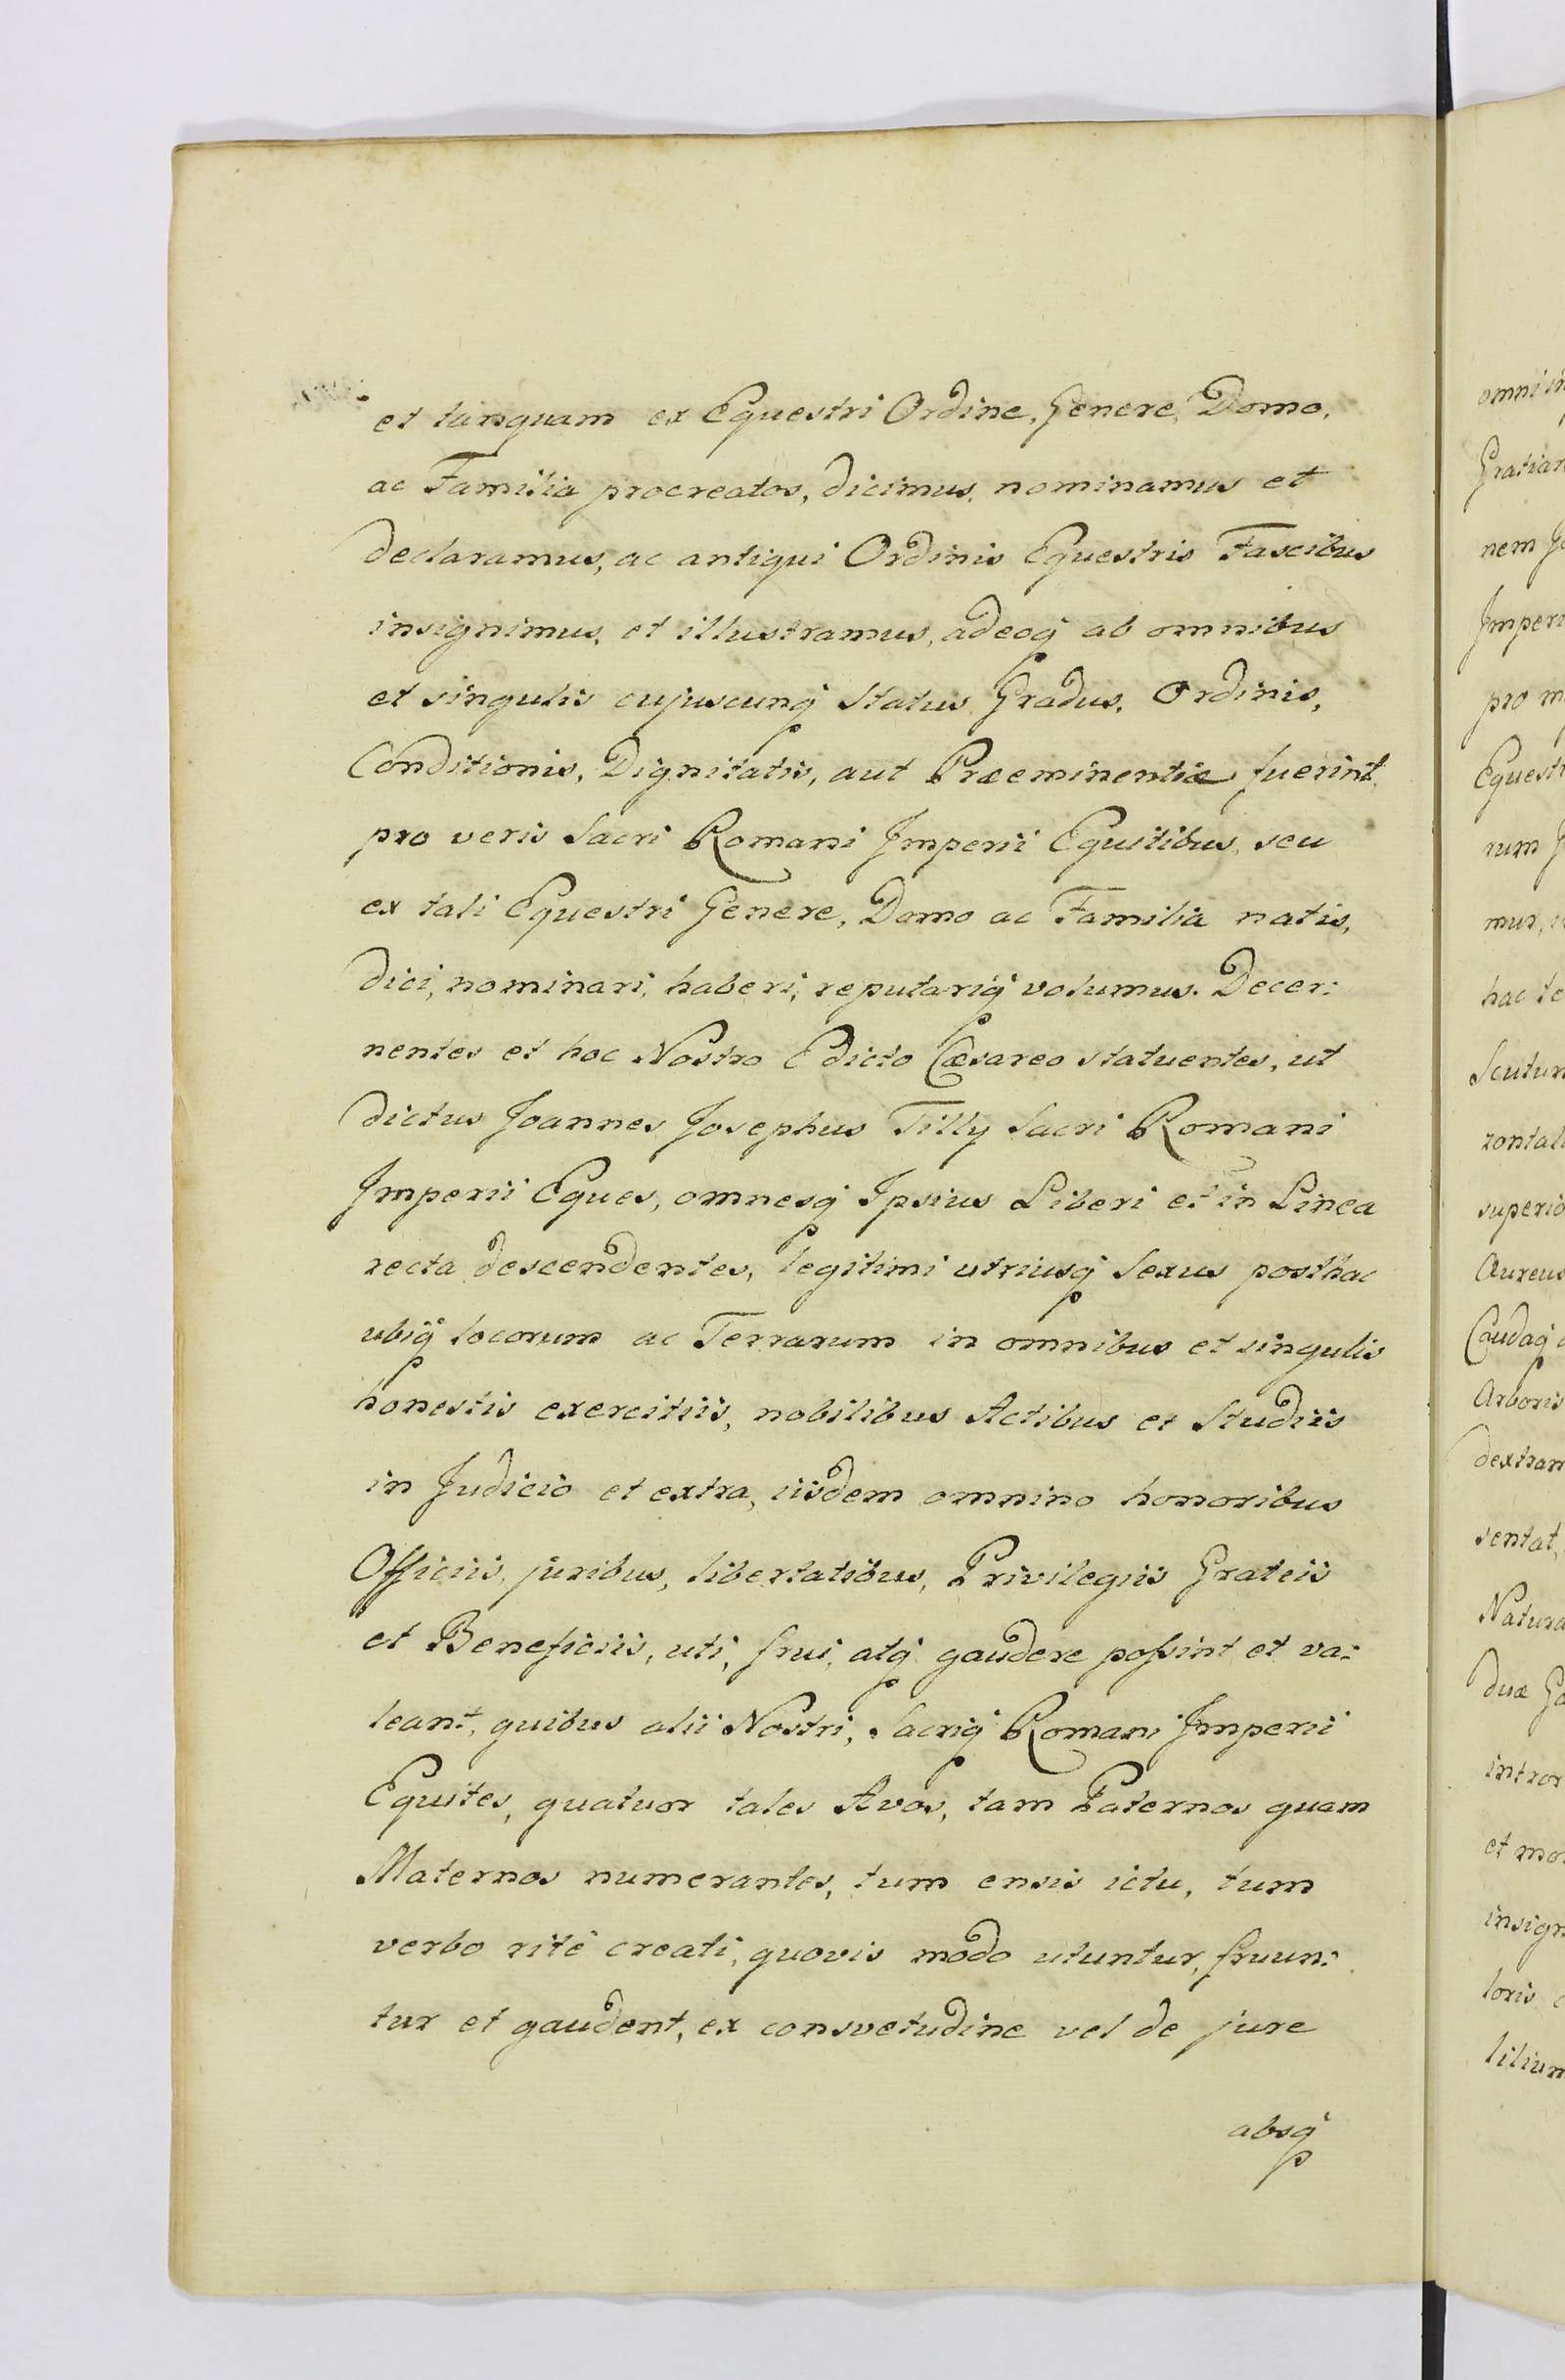 et tanquam ex Equestri Ordine, Genere, Domo,
ac Familia procreatos, dicimus, nominamus et
declaramus, ac antiqui Ordinis Equestris Fascibus
insignimus, et illustramus, adeoq́ ab omnibus
et singulis cujuscunq́ Status, Gradus, Ordinis,
Conditionis, Dignitatis, aut Præeminentiæ fuerint,
pro veris Sacri Romani Imperii Equitibus, seu
ex tali Equestri Genere, Domo ac Familia natis,
dici, nominari, haberi, reputariq́ volumus. Decer:
nentes et hoc Nostro Edicto Cæsareo statuentes, ut
dictus Joannes Josephus Tilly Sacri Romani
Imperii Eques, omnesq́ Ipsius Liberi et in Linea
recta descendentes, legitimi utriusq́ Sexus posthac
ubiq́ locorum ac Terrarum in omnibus et singulis
honestis exercitiis, nobilibus Actibus et Studiis
in Judicio et extra, iisdem omnino honoribus
Officiis, juribus, libertatibus, Privilegiis Grateis
et Beneficiis, uti, frui, atq́ gaudere poſsint et va:
leant, quibus alii Nostri, Sacriq́ Romani Imperii
Equites, quatuor tales Avos, tam Paternos quam
Maternos numerantes, tum ensis ictu, tum
verbo rité creati, quovis modo utuntur, fruun:
tur et gaudent, ex consvetudine vel de jure
absq́
omni in
Gratiar
nem
Imperi
pro m
Equestr
rum
mus,
hac te
Scutum
zontal
superio
Aureus
Caudaq́
Arboris
dextram
sentat,
Natura
duæ
intror
et mo
insign
loris
lilium